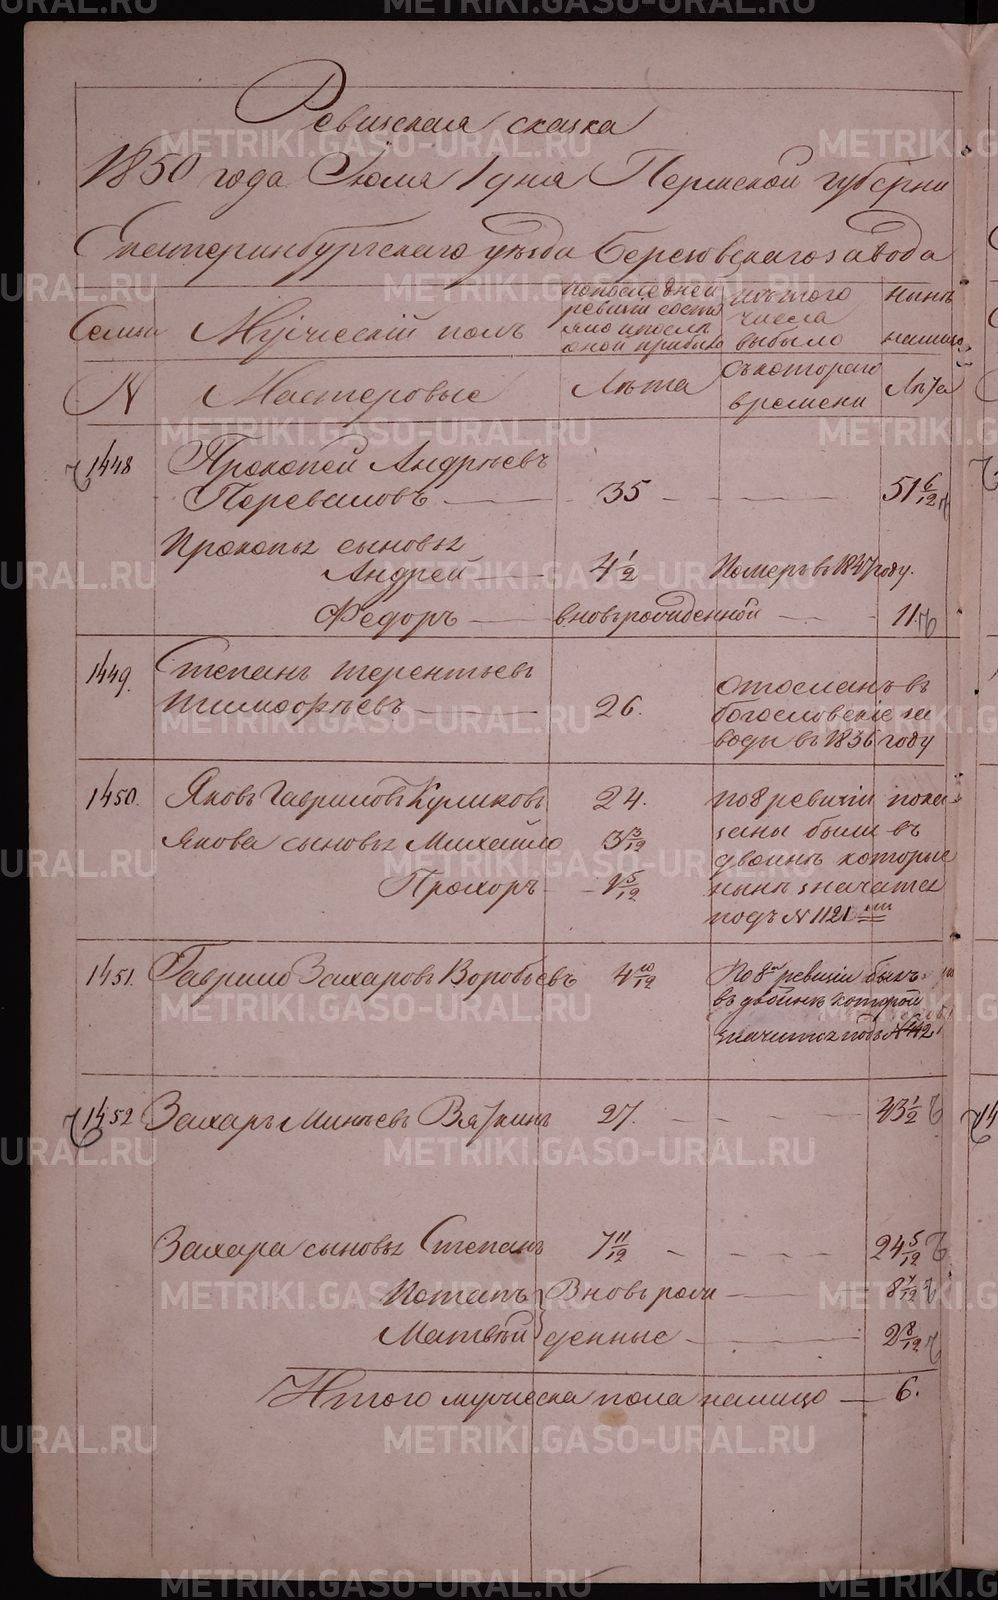 Ревизская сказка
1850 года Іюля 1 дня Пермской губерни
Екатеринбургскаго уѣзда Березовскаго завода
Семьи Мужескій полъ по последней ревизіи состояло и после оной прибыло изъ того числа выбыло нынѣ на лицо
N Мастеровые Лѣта Съ котораго времени Лѣта
1448 Прокопей Андрѣевъ
Переваловъ 35 51 6/12
Прокопья сыновья
Андрей 4 1/2 Померъ в 1847 году.
Федоръ вновь рожденной 11.
1449. Степанъ Терентьевъ
Тимофѣевъ 26. Отосланъ въ
Богословскіе за
воды въ 1836 году
1450. Яковъ Гавриловъ Куликовъ 24. по 8 ревизіи пока
Якова сыновья Михайло 3 3/12 заны были въ
двоинѣ которые
Прохоръ 1 5/12 нынѣ значатся
подъ N 1121
1451. Гаврило Захаровъ Воробьевъ 4 10/12 По 8й ревизіи былъ
въ двоинѣ которой
значится подъ N 1142
1452 Захаръ Минѣевъ Вяткинъ 27. 43 1/2
Захара сыновья Степанъ 7 11/12 24 5/12
Потапъ Вновь рож 8 7/12
Матвѣй денные 2 8/12
Итого мужеска пола налицо — 6.
METRIKI.GASO-URAL.RU